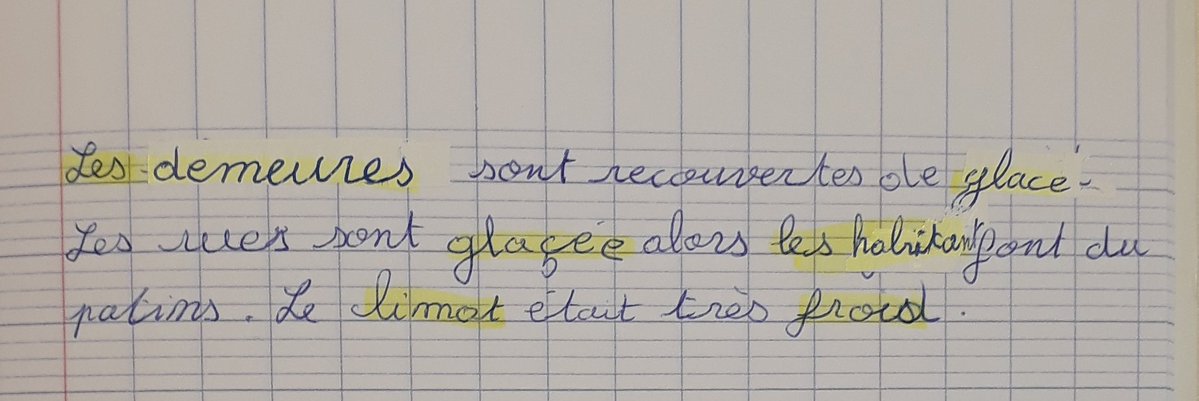 Les demeures sont recouvertes de glacé.
Les rues sont glaçée alors les habitant font du
patins. Le limat était très froid.